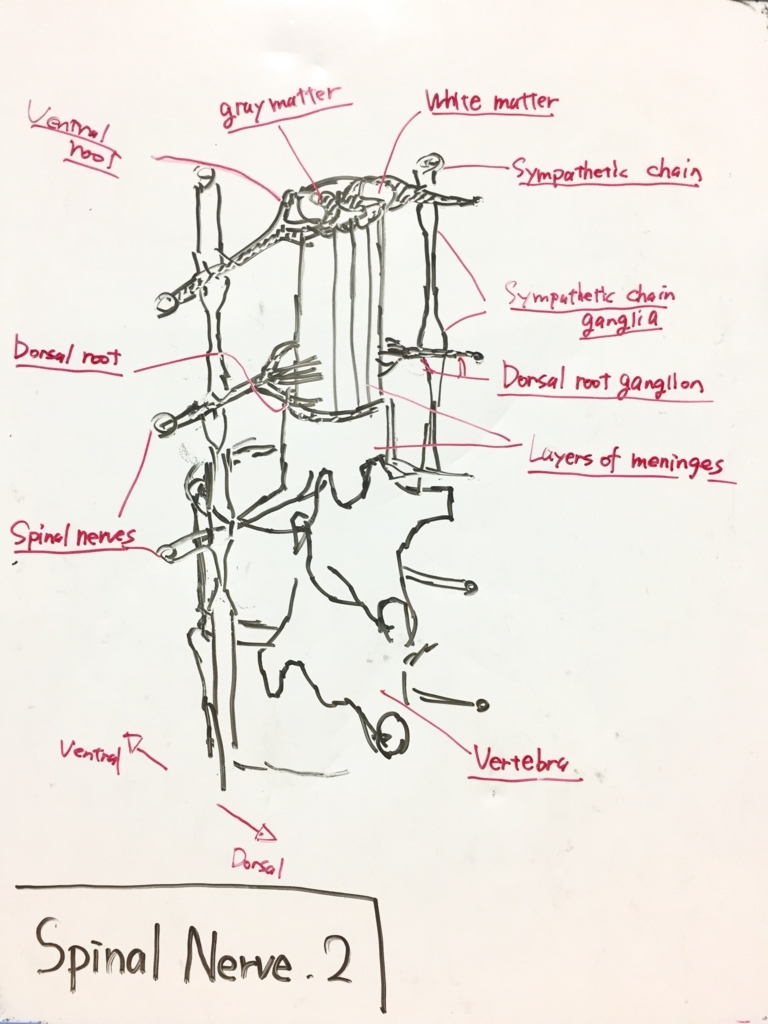 Ventral
root
gray matter
White matter
Sympathetic chain
Sympathetic chain
ganglia
Dorsal root
Dorsal root ganglion
Layers of meninges
Spinal nerves
Ventral
Vertebra
Dorsal
Spinal Nerve. 2